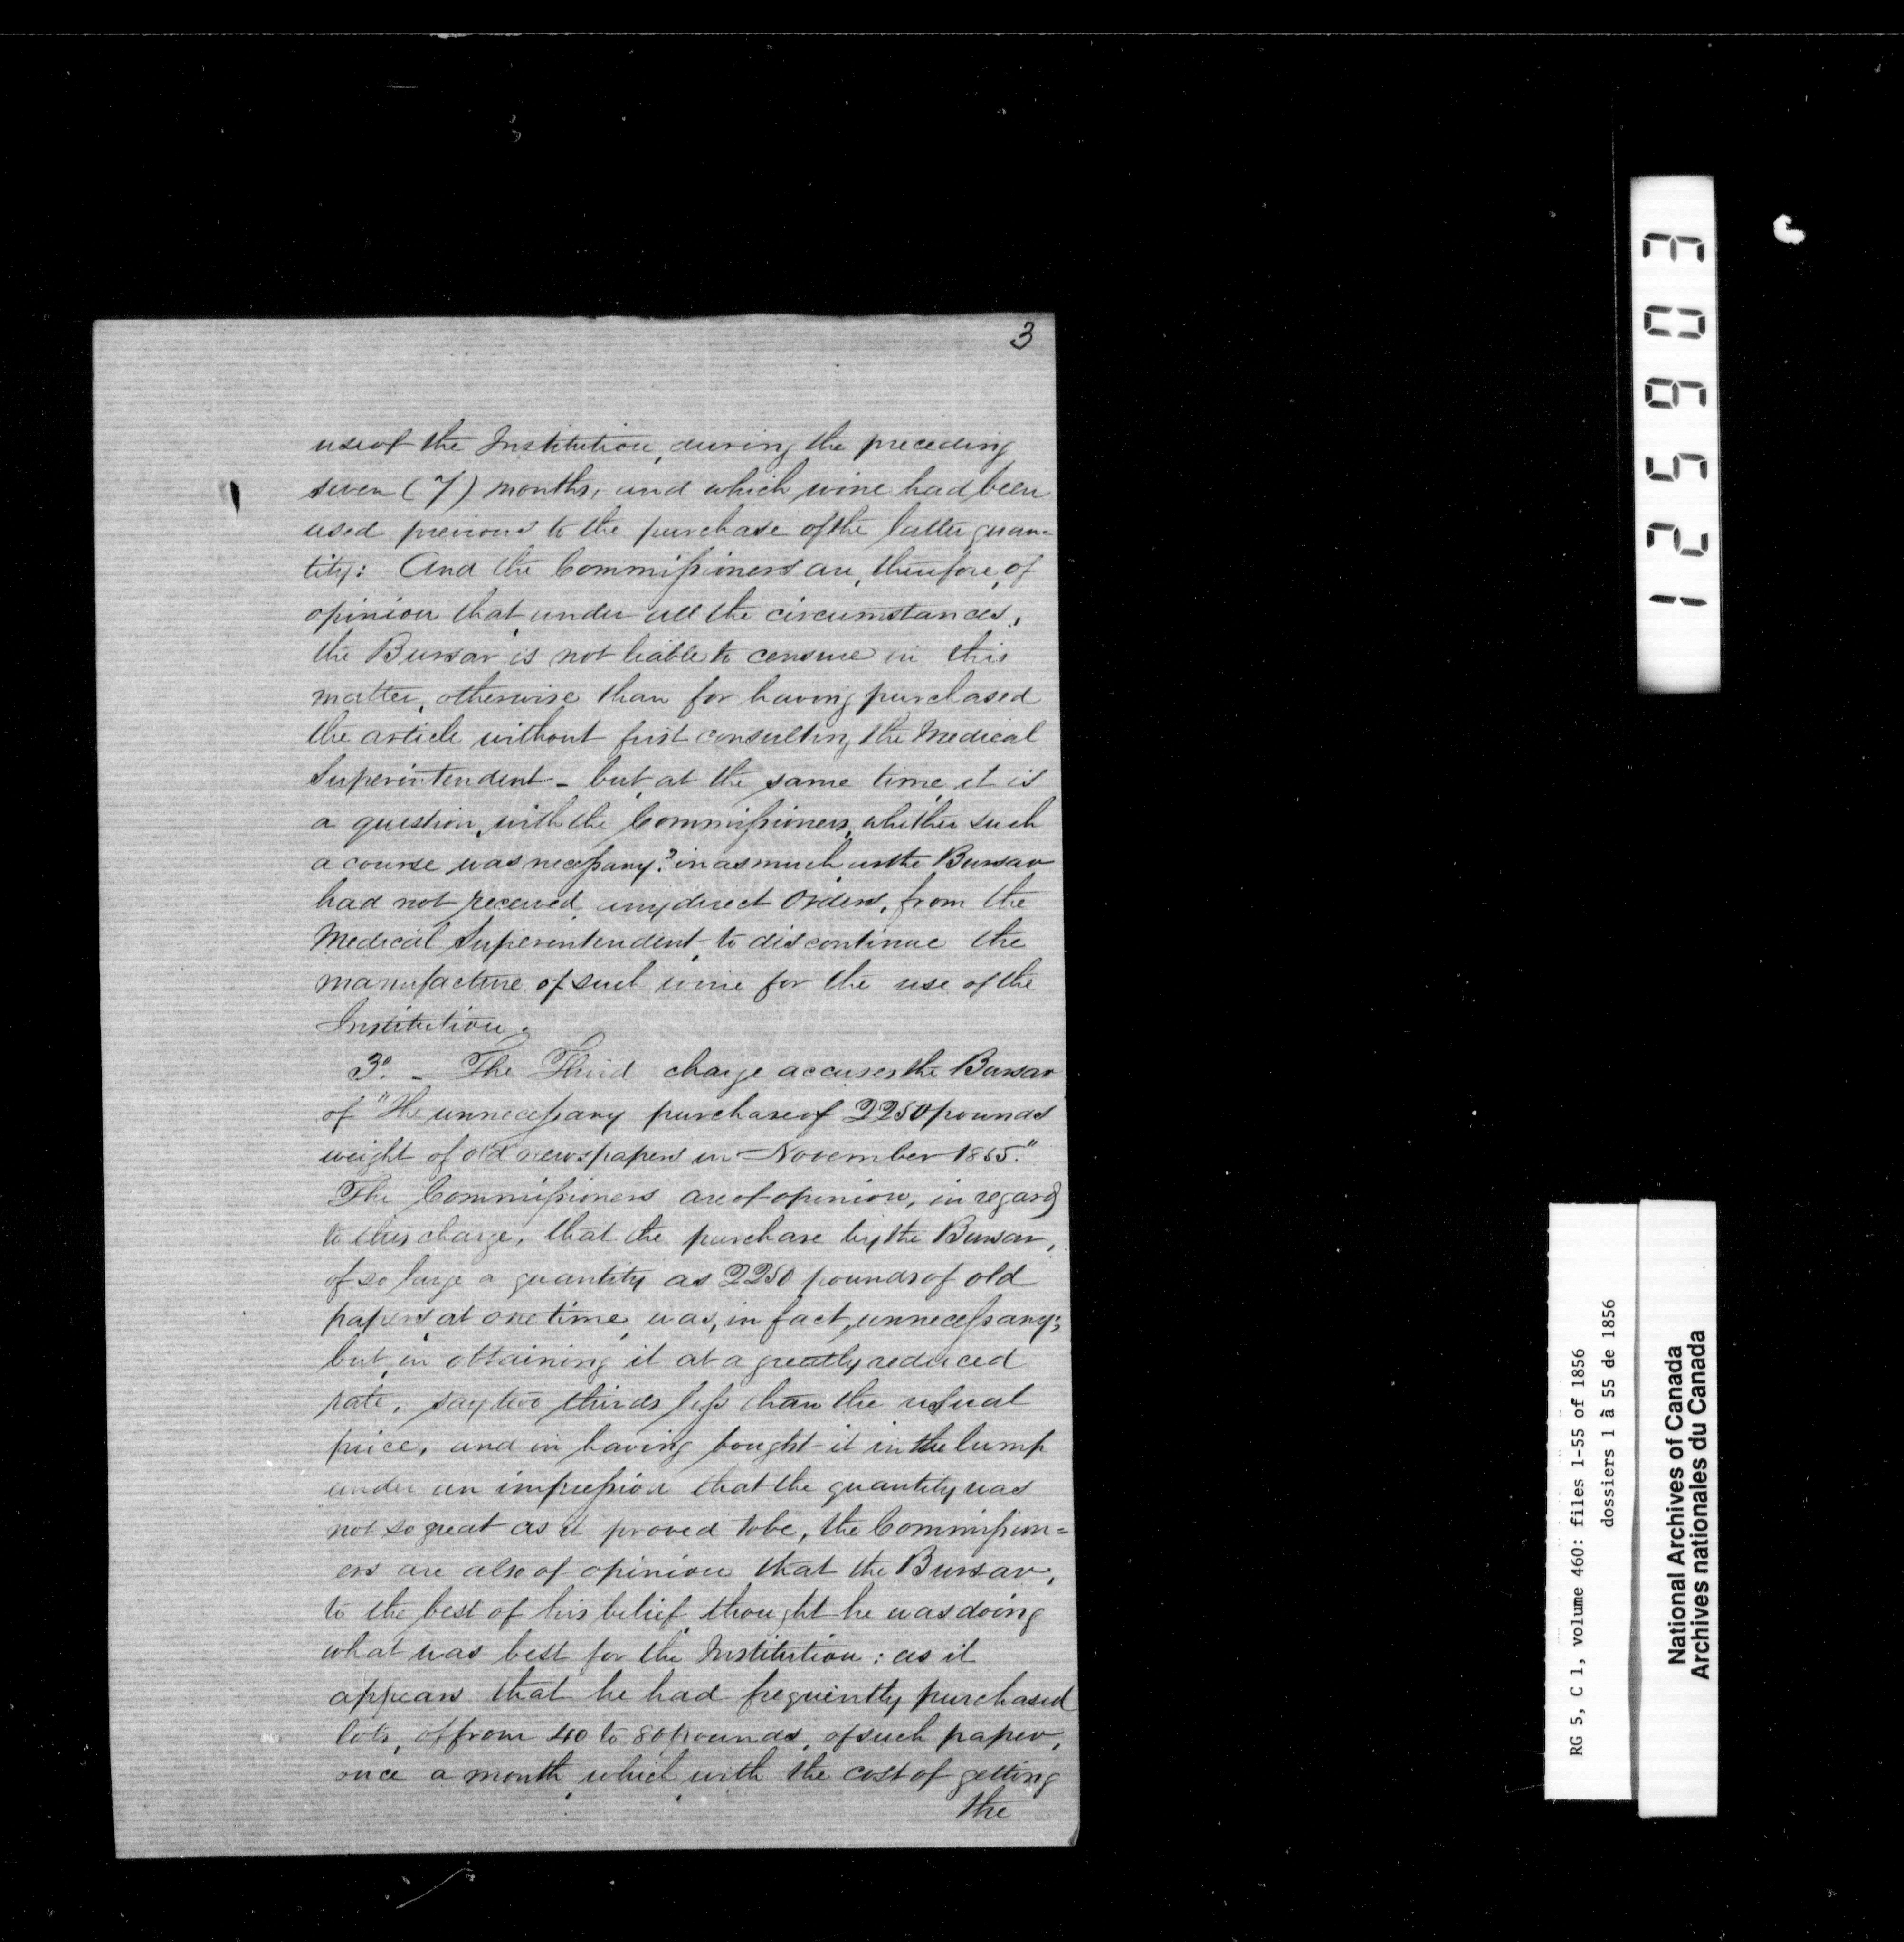 3
use of the Institution, during the preceding
seven (7) months, and which wine had been
used previous to the purchase of the latter quan=
tity: And the Commissioners are, therefore, of
opinion that, under all the circumstances,
the Bursar is not liable to censure in this
matter, otherwise than for having purchased
the article without first consulting the Medical
Superintendent - but, at the same time, it is
a question, with the Commissioners, whether such
a course was necessary? in as much, as the Bursar
had not received, any direct Orders, from the
Medical Superintendent, to discontinue the
manufacture of such wine for the use of the
Institution.
3º. - The Third charge accuses the Bursar
of "the unnecessary purchase of 2250 pounds
weight of old newspapers in November 1855."
The Commissioners are of opinion, in regard
to this charge, that the purchase by the Bursar,
of so large a quantity as 2250 pounds of old
papers, at one time, was, in fact, unnecessary;
but, in obtaining it at a greatly reduced
rate, say two thirds less than the usual
price, and in having bought it in the lump
under an impression that the quantity was
not so great as it proved to be, the Commission=
ers are also of opinion that the Bursar,
to the best of his belief, thought he was doing
what was best for the Institution: as it
appears that he had frequently purchased
lots, of from 40 to 80 pounds, of such paper,
once a month, which, with the cost of getting
the
125903
RG 5, C 1, volume 460: files 1-55 of 1856
dossiers 1 à 55 de 1856
National Archives of Canada
Archives nationales du Canada